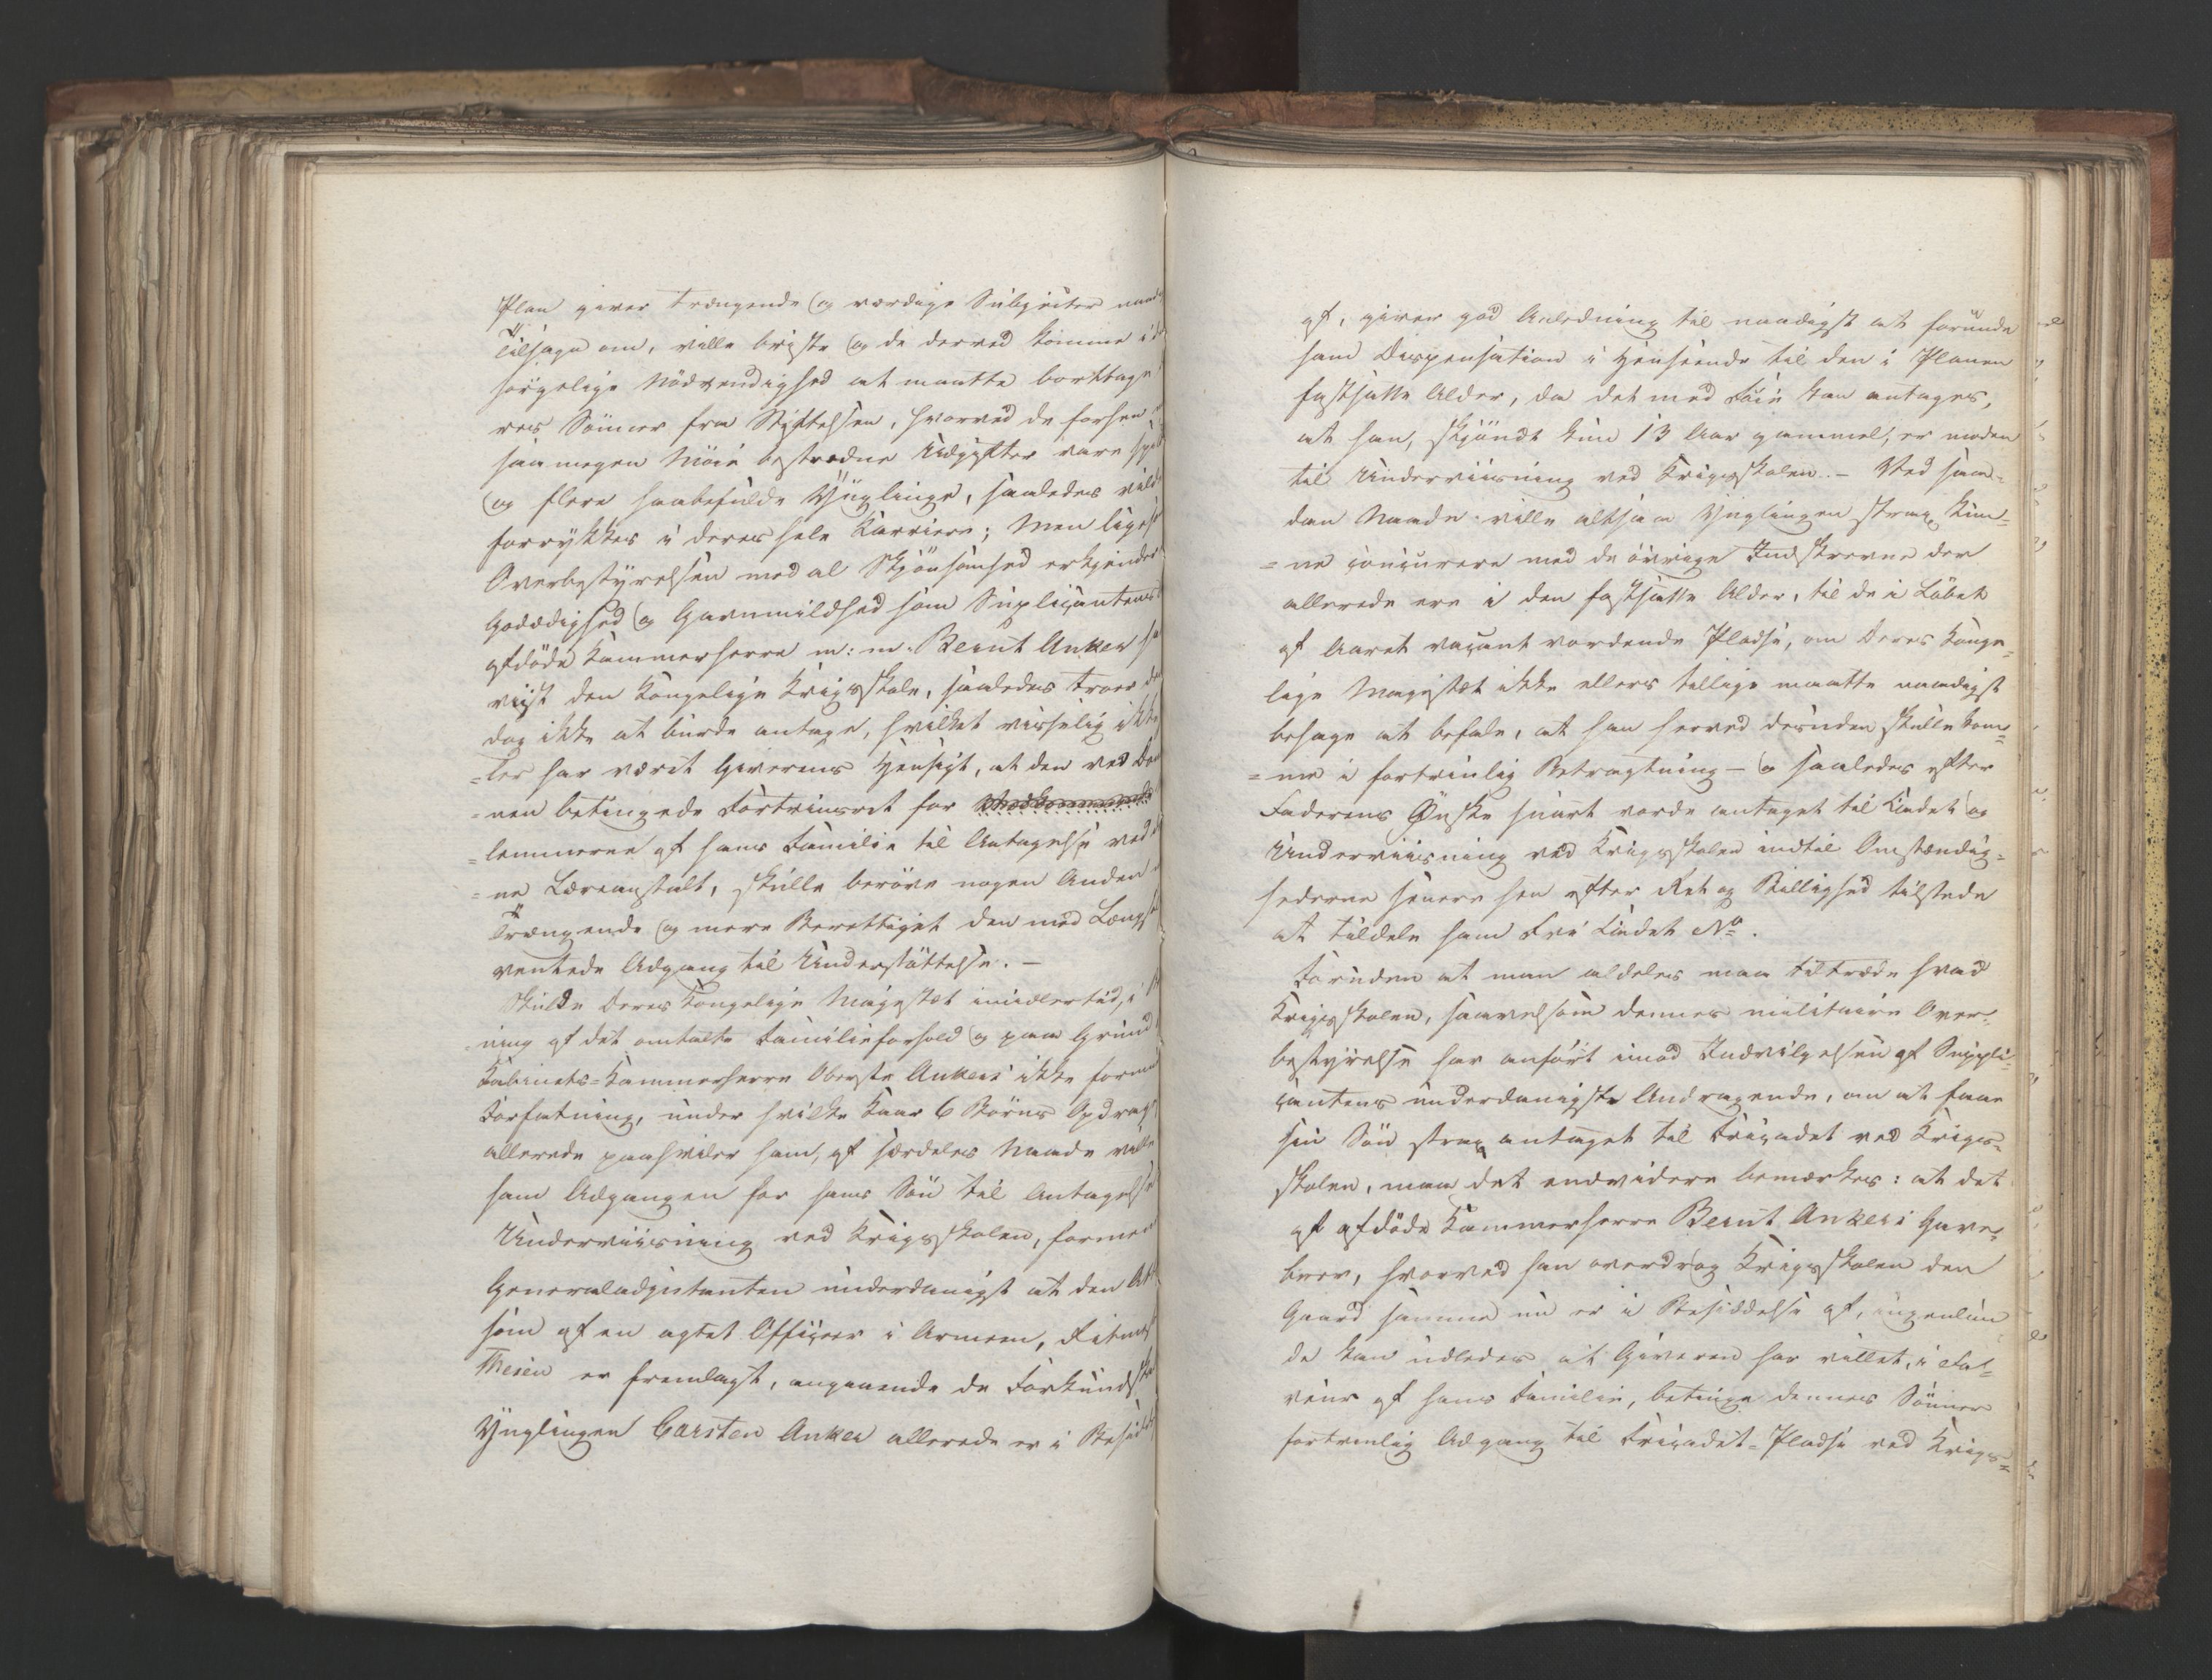 Plan giver trængende og værdige Subjecter naad
Tilsagn om, ville briste og de derved komme i d
sørgelige Nödvendighed at maatte borttage
res Sönner fra Stiftelsen, hvorved de forhen
saa megen Möie bestredne Udgifter vare spil
og flere haabefulde Ynglinge, saaledes vild
forrykkes i deres hele Karriere; Men ligese
Overbestyrelsen med al Skjönsomhed erkjender
Godædighed og Gavmildhed som Suplicantens
afdöde Kammerherre m: m. Bernt Anker ha
viist den Kongelige Krigsskole, saaledes troer de
dog ikke at burde antage, hvilket visselig ikke
=ler har været Giverens Hensigt, at den ved Do
=nen betingede Fortrinsret for
=lemmerne af hans Familie til Antagelse ved d
=ne Læreanstalt, skulle beröve nogen Anden
Trængende og mere Berettiget den med Længs
ventede Adgang til Understöttelse. –
Skulde Deres Kongelige Majestæt imidlertid, i
=ning af det omtalte Familieforhold og paa Grund
Kabinets-Kammerherre Oberste Ankers ikke formu
Forfatning, under hvilke Kaar 6 Börns Opdrag
allerede paahviler ham, af særdeles Naade ville
ham Adgangen for hans Sön til Antagelse
Underviisning ved Krigsskolen, formee
Generaladjutanten underdanigst at den Att
som af en agtet Officeer i Armeen, Ritmst
Thesen er fremlagt, angaaende de Forkundsk
Ynglingen Carsten Anker allerede er i Besidde
af, giver god Anledning til naadigst at forunde
ham Dispensation i Henseende til den i Planen
fastsatte Alder, da det med Föie kan antages,
at han, skjöndt kun 13 Aar gammel, er moden
til Underviisning ved Krigsskolen. – Ved saa-
dan Naade ville altsaa Ynglingen strax kun=
=ne concurere med de övrige Indskrevne der
allerede ere i den fastsatte Alder, til de i Löbet
af Aaret vacant vordende Pladse, om Deres Konge=
lige Majestæt ikke ellers tillige maatte naadigst
behage at befale, at han herved desuden skulle kom=
=me i fortrinlig Betragtning – og saaledes efter
Faderens Önske snart vorde antaget til Cadet og
Underviisning ved Krigsskolen indtil Omstændig=
hederne senere hen efter Ret og Billighed tilstede
at tildele ham Fri Cadet No.
Foruden at man aldeles maa tiltræde hvad
Krigsskolen, saavelsom dennes militaire Over-
bestyrelse har anfört imod Indvilgelsen af Suppli-
cantens underdanigste Andragende, om at faae
sin Sön strax antaget til Fricadet ved Krigs-
skolen, maa det endvidere bemærkes: at det
af afdöde Kammerherre Bernt Ankers Gave-
brev, hvorved han overdrog Krigsskolen den
Gaard samme nu er i Besiddelse af, ingenlun
de kan udledes at Giveren har villet, i Fa-
veur af hans Familie, betinge dennes Sönner
fortrinlig Adgang til Fricadet-Pladse ved Krigs=